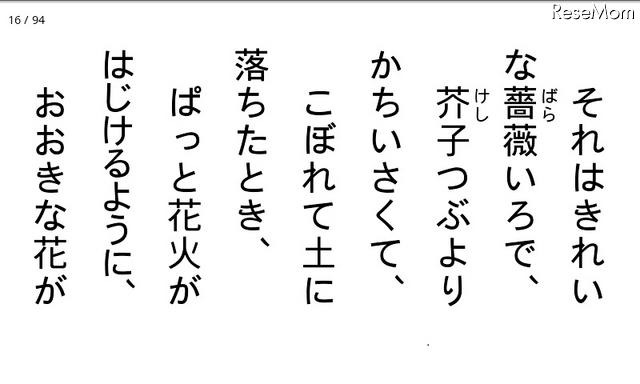 16 / 94
ReseMom
それはきれい
な薔薇いろで、
ばら
芥子つぶより
けし
かちいさくて、
こぼれて土に
落ちたとき、
ぱっと花火が
はじけるように、
おおきな花が